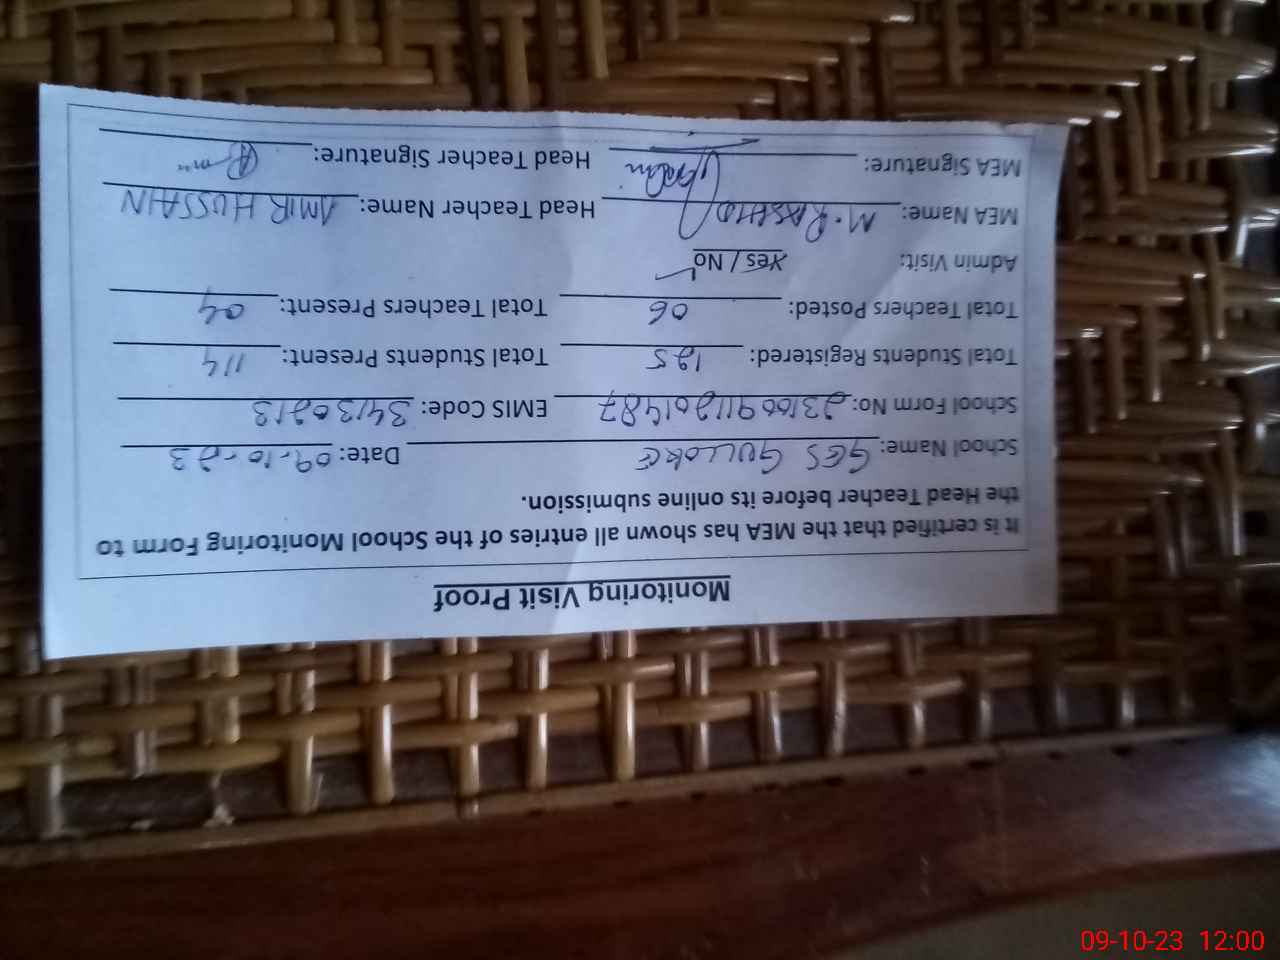 Monitoring Visit Proof
It is certified that the MEA has shown all entries of the School Monitoring Form to
the Head Teacher before its online submission.
School Name: GES GULLOKE Date: 09-10-23
School Form No: 23100911201487 EMIS Code: 34130213
Total Students Registered: 125 Total Students Present: 114
Total Teachers Posted: 06 Total Teachers Present: 04
Admin Visit: Yes / No
MEA Name: M. RASHID Head Teacher Name: AMIR HUSSAIN
MEA Signature: Head Teacher Signature:
09-10-23 12:00